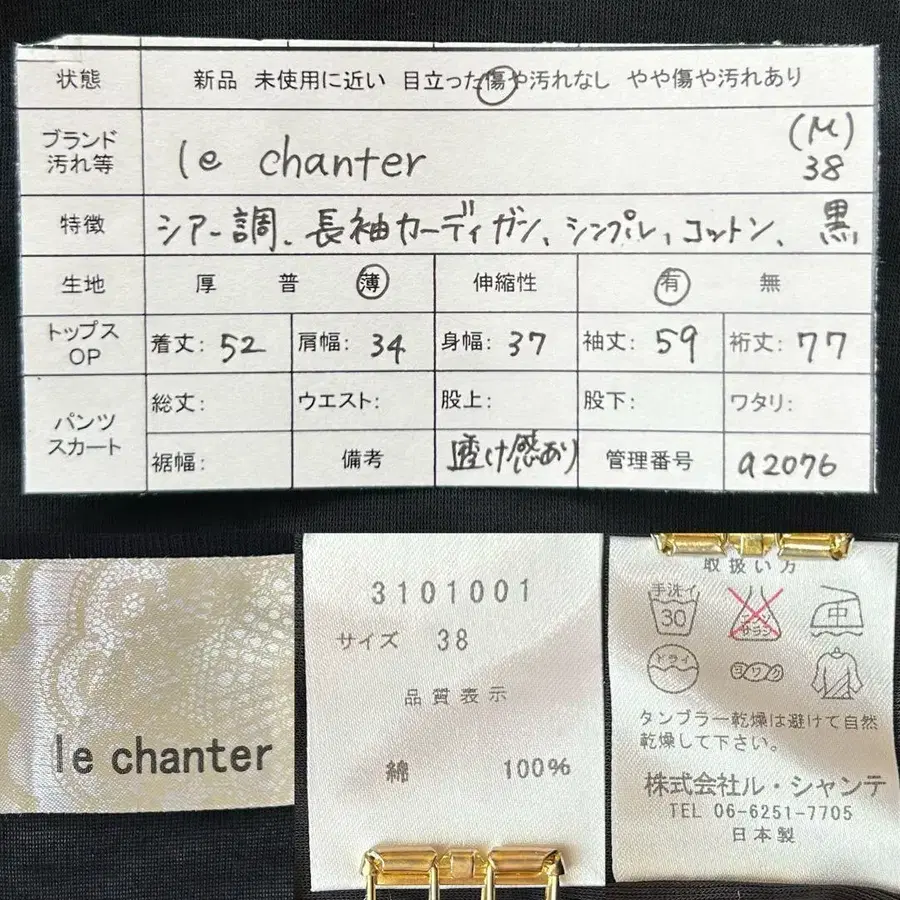 状態 新品 未使用に近い 目立った傷や汚れなし やや傷や汚れあり
ブランド 汚れ等 le chanter (M) 38
特徴 シアー調、長袖カーディガン、シンプル、コットン、黒、
生地 厚 普 薄 伸縮性 有 無
トップス OP 着丈: 52 肩幅: 34 身幅: 37 袖丈: 59 裄丈: 77
パンツ スカート 総丈: ウエスト: 股上: 股下: ワタリ:
裾幅: 備考 透け感あり 管理番号 a2076
le chanter
3101001
サイズ 38
品質表示
綿 100%
取扱い方
手洗イ 30 エンソ サラシ 中
ドライ ヨワク
タンブラー乾燥は避けて自然
乾燥して下さい。
株式会社ル・シャンテ
TEL 06-6251-7705
日本製